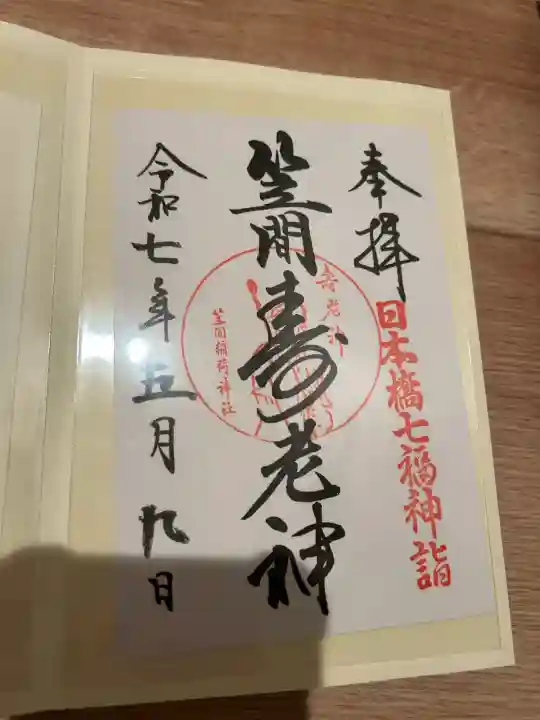 奉拝
日本橋七福神詣
笠間寿老神
寿老神
笠間稲荷神社
令和七年五月九日